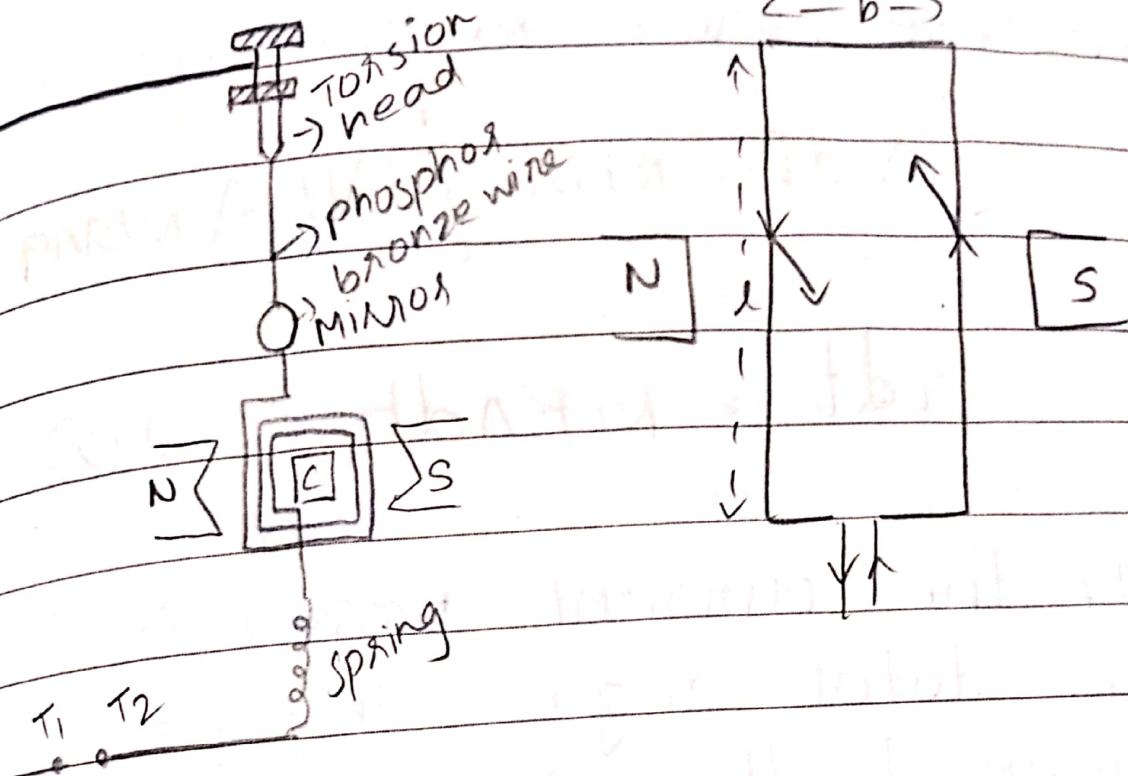 Torsion
head
phosphor
bronze wire
Mirror
N
C
S
spring
T1 T2
b
l
N
S